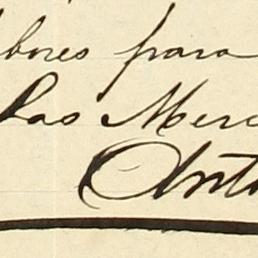 bres para
las Merc
Anto